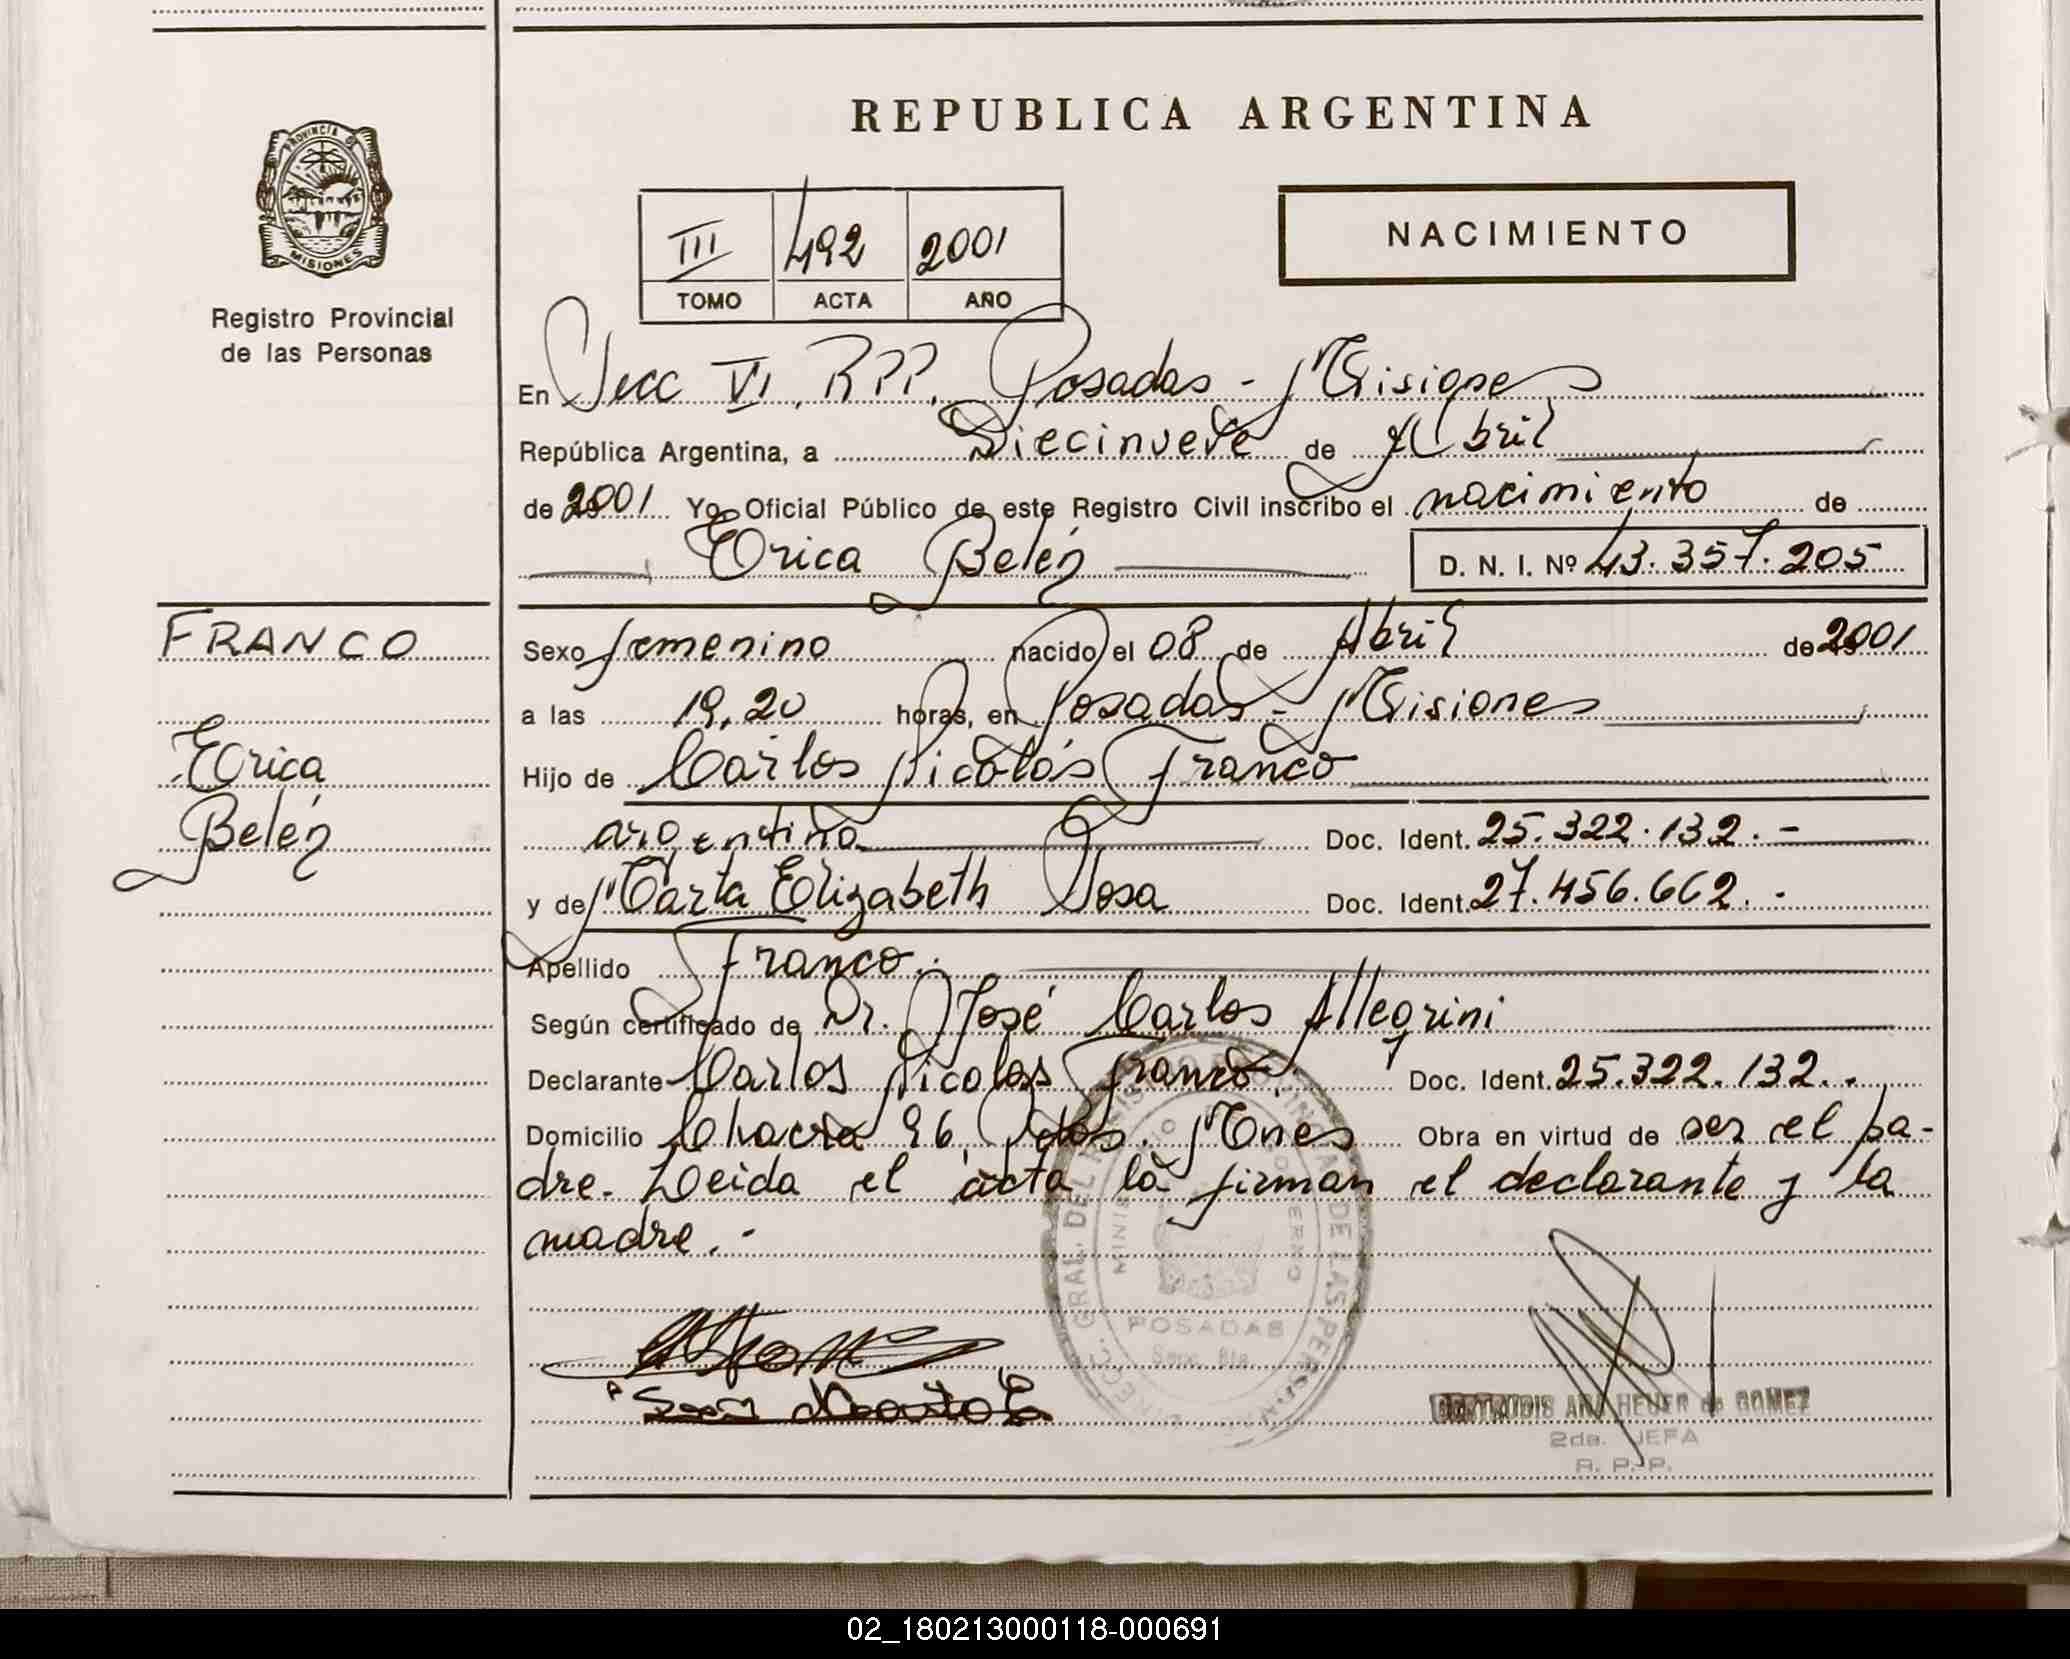 PROVINCIA DE
MISIONES
Registro Provincial
de las Personas
REPUBLICA ARGENTINA
III 492 2001
TOMO ACTA AÑO
NACIMIENTO
En Secc VI, RPP, Posadas - Misiones
República Argentina, a Diecinueve de Abril
de 2001 Yo, Oficial Público de este Registro Civil inscribo el nacimiento de
Erica Belén D. N. I. Nº 43.357.205
FRANCO
Erica
Belén
Sexo femenino nacido el 08 de Abril de 2001
a las 19,20 horas, en Posadas - Misiones
Hijo de Carlos Nicolás Franco
argentino Doc. Ident. 25.322.132.-
y de Marta Elizabeth Sosa Doc. Ident. 27.456.662.-
Apellido Franco.
Según certificado de Dr. José Carlos Allegrini
Declarante Carlos Nicolas Franco. Doc. Ident. 25.322.132.
Domicilio Chacra 96, Pdas. Mnes Obra en virtud de ser el pa-
dre. Leida el acta la firman el declarante y la
madre.-
POSADAS
GERTRUDIS ANA HEUER de GOMEZ
2da. JEFA
R. P. P.
02_180213000118-000691